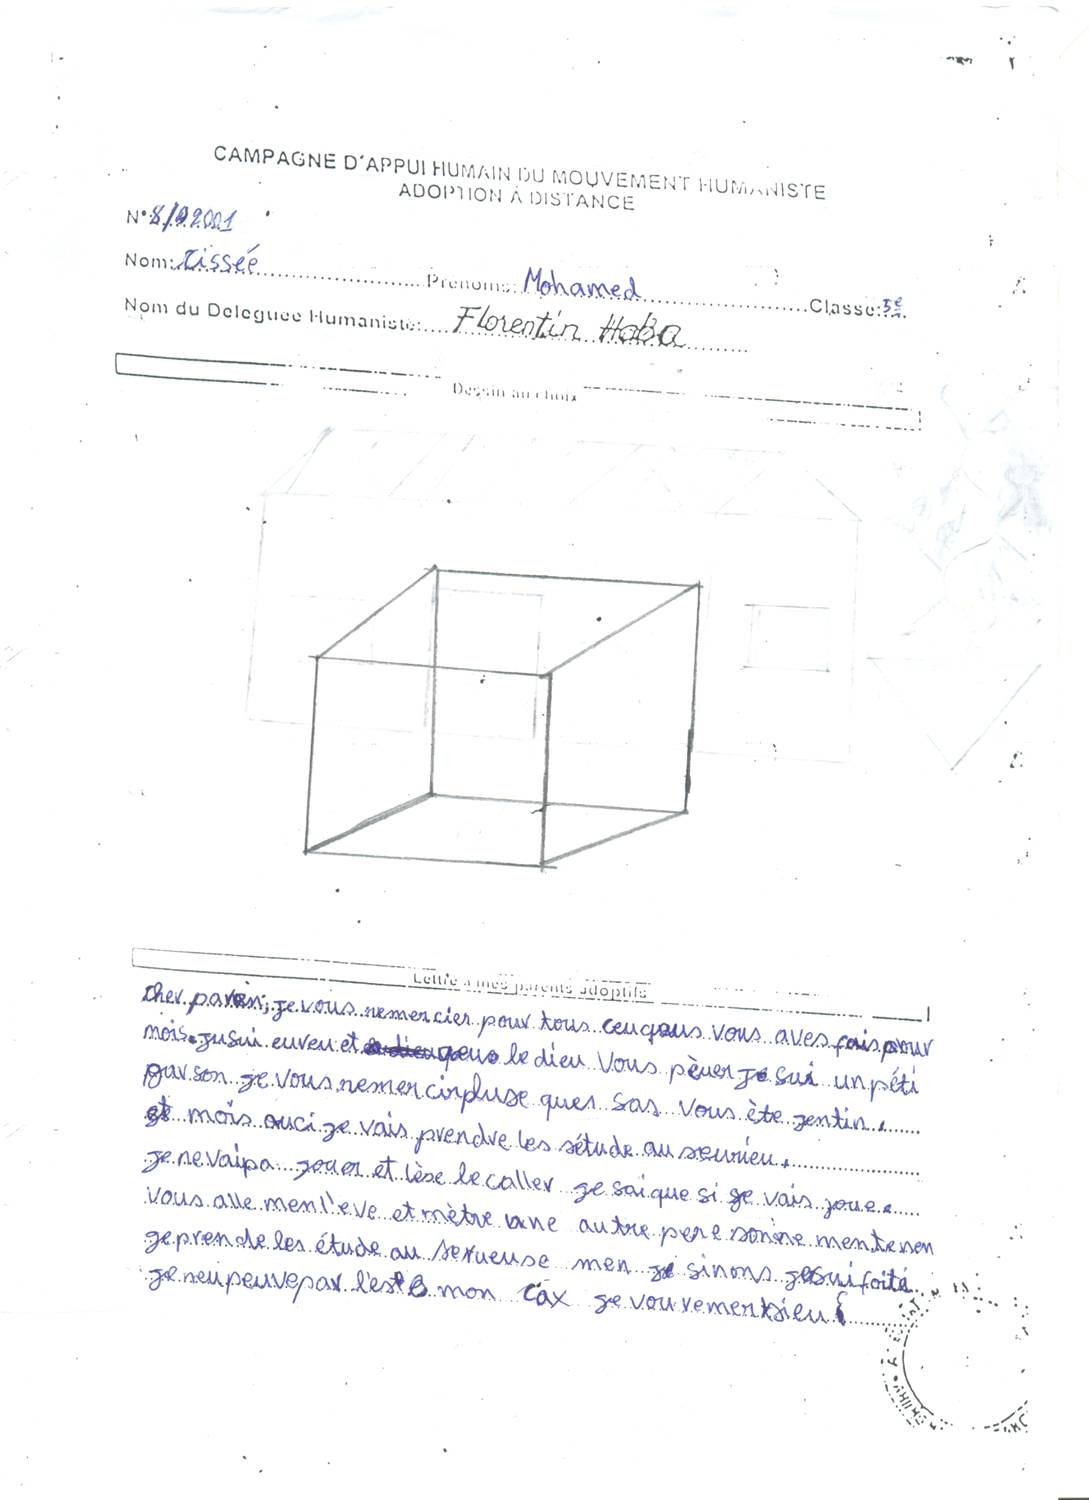 CAMPAGNE D'APPUI HUMAIN DU MOUVEMENT HUMANISTE
ADOPTION À DISTANCE
N°
Nom: Cissée Prénoms: Mohamed Classe: 5e
Nom du Deleguee Humaniste: Florentin Haba
Dessin au choix
Lettre a mes parents adoptifs
cher paren, je vous remercier pour tous ceuqeus vous aves fais pour
mois. jusui eureu et queus le dieu vous pèuer je sui un péti
garson je vous remercirpluse ques sas vous ète gentin
et mois auci je vais prendre les sétude au seurieu.
je ne vaipa jouer et lèse le caller je sai que si je vais joue.
vous alle menl'eve et mètre une autre pere sonne mentenen
je prende les étude au serueuse men je sinons jesui foité
je neu peuve par l'est mon cax je vou remersieu